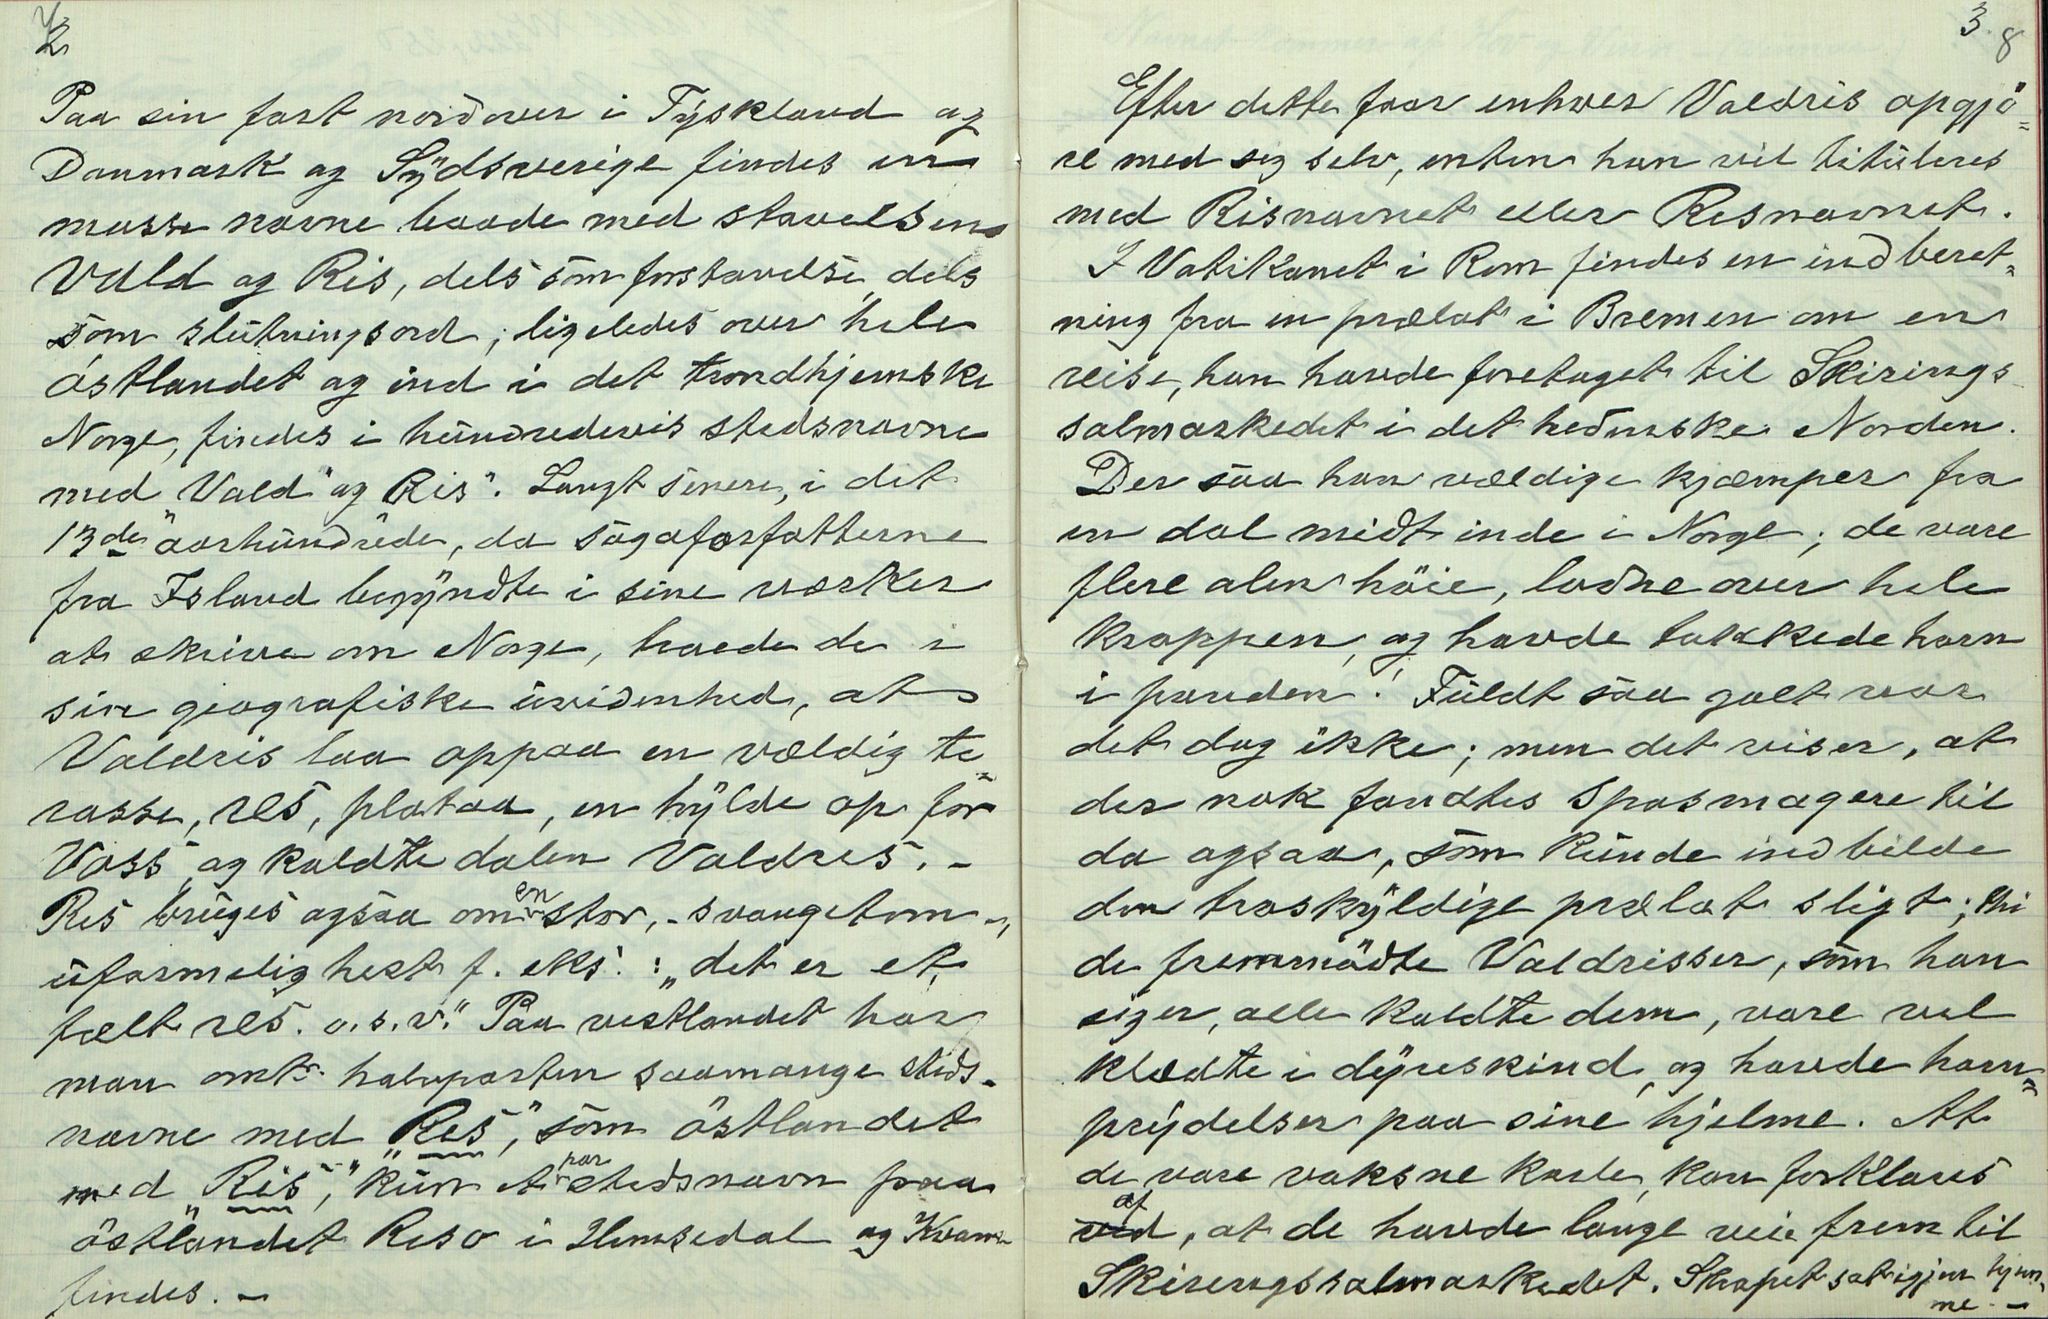 2
Paa sin fart nordover i Tyskland og
Danmark og Sydsverige findes en
masse navne baade med stavelsen
Vald og Ris, dels som forstavelse, dels
som slutningsord; ligeledes over hele
östlandet og ind i det trondhjemske
Norge, findes i hundredevis stedsnavne
med "Vald" og "Ris". Langt senere, i det
13de aarhundrede, da sagaforfatterne
fra Island begyndte i sine værker
at skrive om Norge, troede de i
sin geografiske uvidenhed, at
Valdris laa oppaa en vældig te=
rasse, res, plataa, en hylde op for
Voss, og kaldte dalen Valdres. -
Res bruges ogsaa om en stor, - svanget om -,
uformelig hest f. eks.: "det er et
fælt res. o.s.v." Paa vestlandet har
man omtr. halvparten saamange steds-
navne med "Res", som östlandet
med "Ris", kun et par stedsnavn paa
östlandet Reso i Hemsedal og Kvam
findes. -
3 8
Efter dette faar enhver Valdris opgjö=
re med sig selv, enten han vil tituleres
med Risnavnet eller Resnavnet.
I Vatikanet i Rom findes en indberet=
ning fra en prælat i Bremen om en
reise, han havde foretaget til Skirings
salmarkedet i det hedenske Norden.
Der saa han vældige kjæmper fra
en dal midt inde i Norge; de vare
flere alen höie, lodne over hele
kroppen, og havde takkede horn
i panden! Fuldt saa galt var
det dog ikke; men det viser, at
der nok fandtes Spasmagere til
da ogsaa, som kunde indbilde
den troskyldige prælat sligt; thi
de fremmödte Valdrisser, som han
siger, alle kaldte dem, vare vel
klædte i dyreskind, og havde horn=
prydelser paa sine hjelme. At
de vare voksne karle, kan forklares
af, at de havde lange veie frem til
Skiringssalmarkedet. Skrapet sat igjen hjem=
me. -